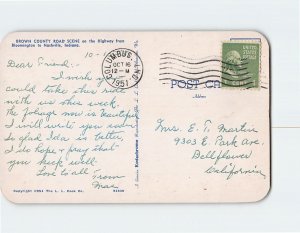 BROWN COUNTY ROAD SCENE on the Highway from
Bloomington to Nashville, Indiana.
10-
Dear Friend:-
I wish you
could take this ride
with us this week.
The foliage now is beautiful
I will write you soon
So glad Ida is better,
I do hope & pray that
you keep well.
Love to all
From
Mae
Copyright 1951 The L. L. Cook Co.
COLUMBUS IND.
OCT 16
12-M
1951
UNITED STATES
POSTAGE
POST CA
Address
Mrs. E. T. Martin
9303 E. Park Ave.
Bellflower
California